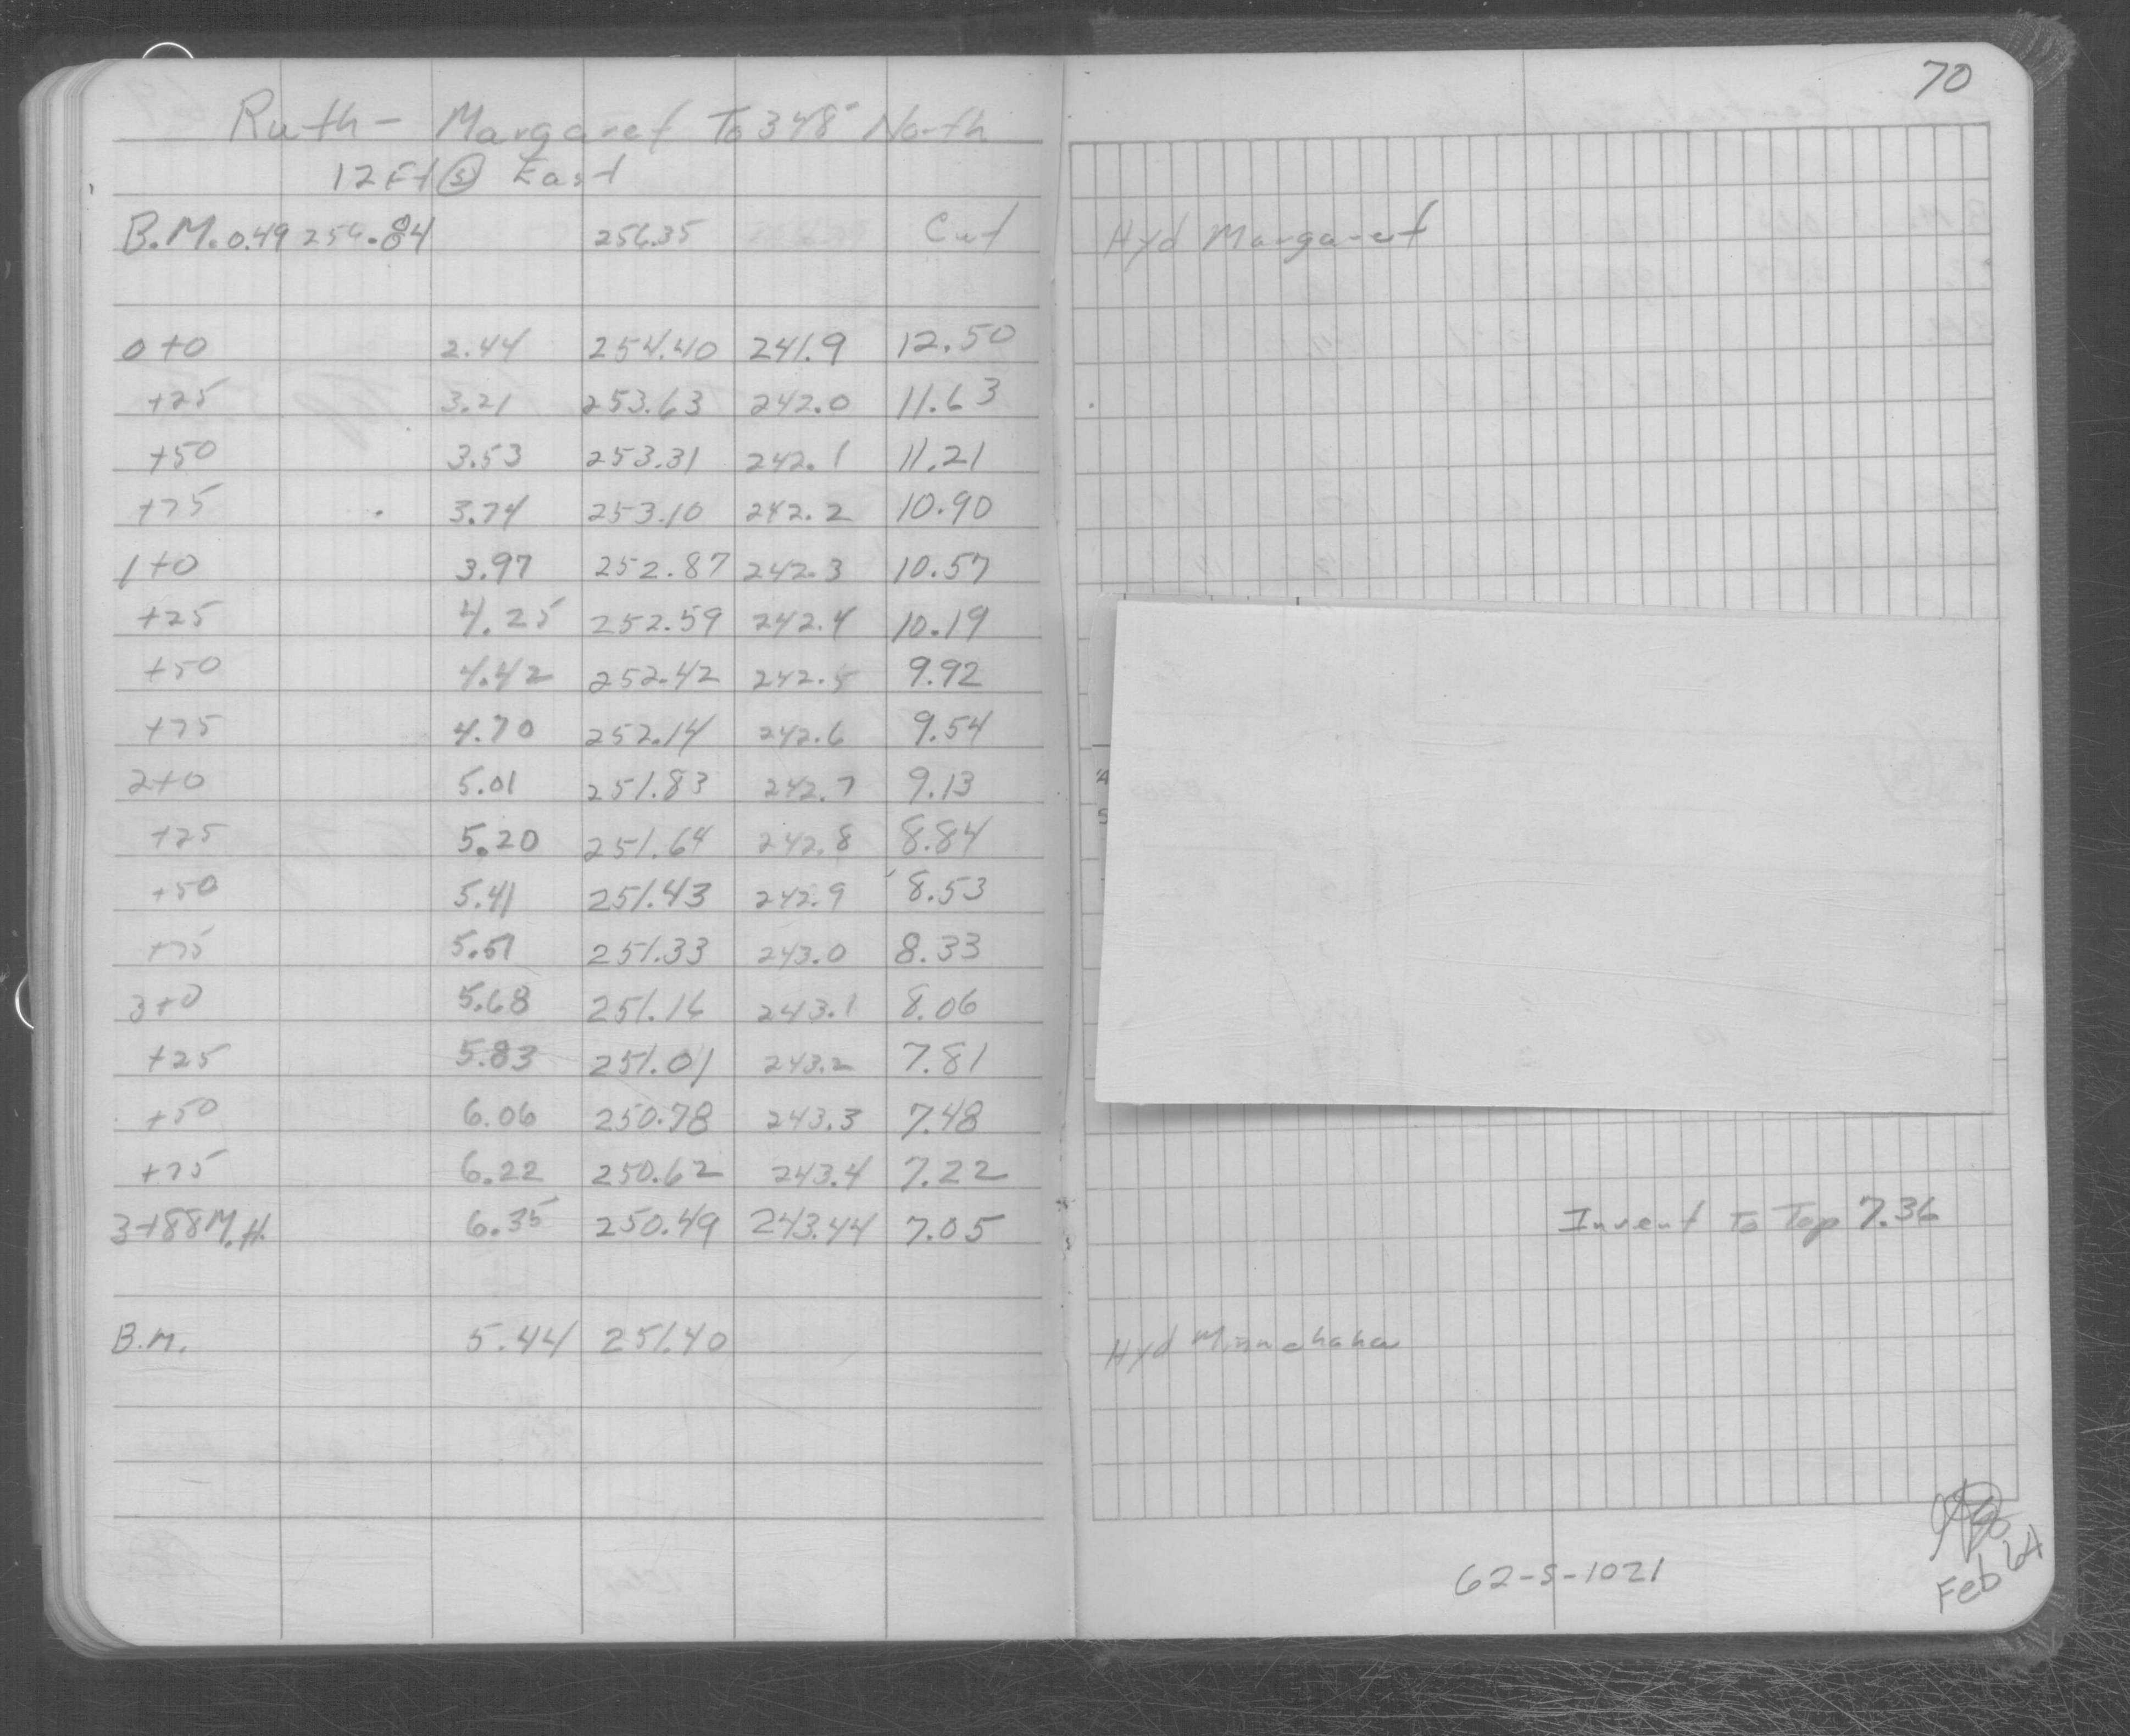 70
Ruth - Margaret To 348' North
12 Ft Ⓢ East
B.M. 0.49 256.84 256.35 Cut Hyd Margaret
0+0 2.44 254.40 241.9 12.50
+25 3.21 253.63 242.0 11.63
+50 3.53 253.31 242.1 11.21
+75 3.74 253.10 242.2 10.90
1+0 3.97 252.87 242.3 10.57
+25 4.25 252.59 242.4 10.19
+50 4.42 252.42 242.5 9.92
+75 4.70 252.14 242.6 9.54
2+0 5.01 251.83 242.7 9.13
+25 5.20 251.64 242.8 8.84
+50 5.41 251.43 242.9 8.53
+75 5.51 251.33 243.0 8.33
3+0 5.68 251.16 243.1 8.06
+25 5.83 251.01 243.2 7.81
+50 6.06 250.78 243.3 7.48
+75 6.22 250.62 243.4 7.22
3+88 M.H. 6.35 250.49 243.44 7.05 Invent To Top 7.36
B.M. 5.44 251.40 Hyd Minnehaha
62-S-1021
Feb 64